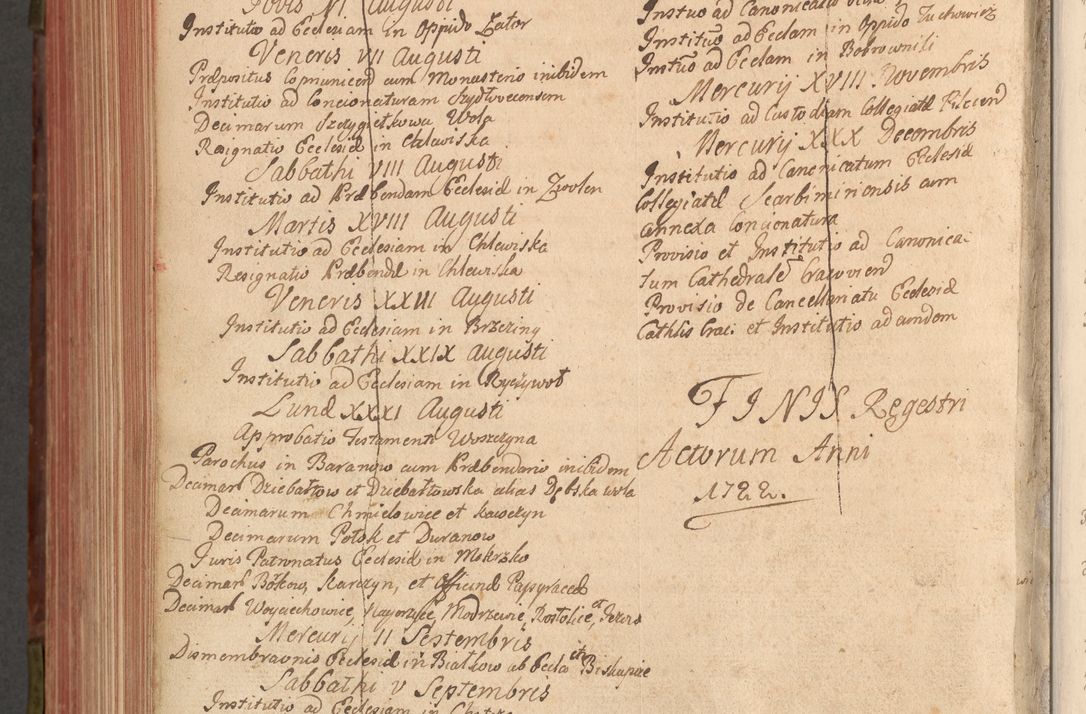 Jovis VI Augusti
Institutio ad Ecclesiam in Oppido Zator
Veneris VII Augusti
Præpositus Comunicend cum Monasterio inibidem
Institutio ad Concionaturam Szydłovecensem
Decimarum Wola
Resignatio Ecclesiæ in Chlewiska
Sabbathi VIII Augusti
Institutio ad Præbendam Ecclesiæ in Zwolen
Martis XVIII Augusti
Institutio ad Ecclesiam in Chlewiska
Resignatio Præbendæ in Chlewska
Veneris XXIII Augusti
Institutio ad Ecclesiam in Brzeziny
Sabbathi XXIX Augusti
Institutio ad Ecclesiam in Ryczywoł
Lunæ XXXI Augusti
Approbatio Testamenti Woszczyna
Parochus in Baranow cum Præbendario inibidem
Decimar Dziebałtow et Dziebałtowska alias Dębska wola
Decimarum Chmielowice et
Decimarum Potok et Duranow
Juris Patronatus Ecclesiæ in Mokrzko
Decimar Bółkow, Karczyn, et Officinæ Papyraceæ
Decimar Woyciechowice, Modrzewie, et
Mercurij II Septembris
Dismembravnis Ecclesiæ in Białkow ab Eccla in Biskupice
Sabbathi V Septembris
Institutio ad Ecclesiam in
Institutio ad Ecclam in Oppido
Instuo ad Ecclam in Bobrowniki
Mercurij XVIII Novembris
Institutio ad Custodiam Collegiatæ Kielcen
Mercurij XXX Decembris
Institutio ad Canonicatum Ecclesiæ
Collegiatæ Scarbimiriensis cum
annexa Concionatura
Provisio et Institutio ad Canonica-
tum Cathedrale Cracovien
Provisio de Cancellariatu Ecclesiæ
Cathlis Crac: et Institutio ad eundem
FINIS Regestri
Actorum Anni
1722.